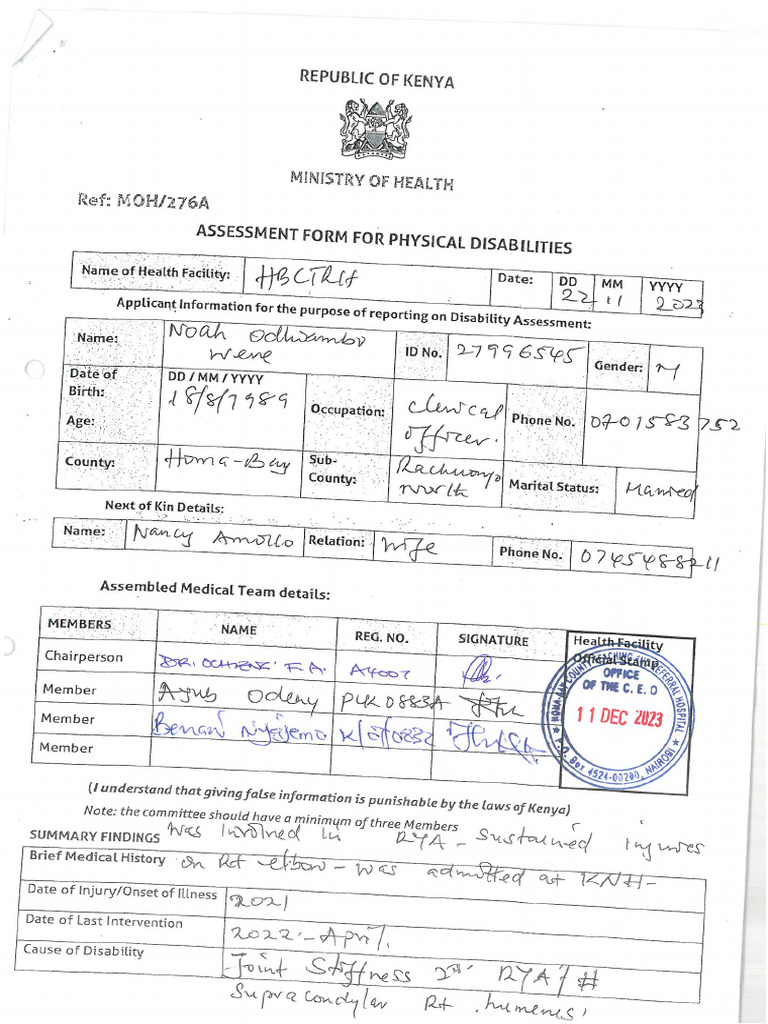 REPUBLIC OF KENYA
MINISTRY OF HEALTH
Ref: MOH/276A
ASSESSMENT FORM FOR PHYSICAL DISABILITIES
Name of Health Facility: HBCTRH Date: DD MM YYYY
22 11 2023
Applicant Information for the purpose of reporting on Disability Assessment:
Name: Noah Odhiambo Were ID No. 27996545 Gender: M
Date of Birth: DD / MM / YYYY
18/8/1989
Age:
Occupation: Clinical officer. Phone No. 0701583752
County: Homa-Bay Sub-County: Rachuonyo North Marital Status: Married
Next of Kin Details:
Name: Nancy Amollo Relation: Wife Phone No. 0745488211
Assembled Medical Team details:
MEMBERS NAME REG. NO. SIGNATURE Health Facility Official Stamp
Chairperson DR. OCHIENG F.A. A4007
Member Ayub Odeny PCK0883A
Member
Member
HOMA BAY COUNTY TEACHING AND REFERRAL HOSPITAL
OFFICE
OF THE C.E.O
11 DEC 2023
P.O. Box 4524-00200, NAIROBI
(I understand that giving false information is punishable by the laws of Kenya)
Note: the committee should have a minimum of three Members
SUMMARY FINDINGS Was involved in RTA - sustained injuries
Brief Medical History on Rt elbow - was admitted at KNH -
Date of Injury/Onset of Illness 2021
Date of Last Intervention 2022 - April.
Cause of Disability Joint Stiffness 2° RTA / #
Supracondylar Rt humerus